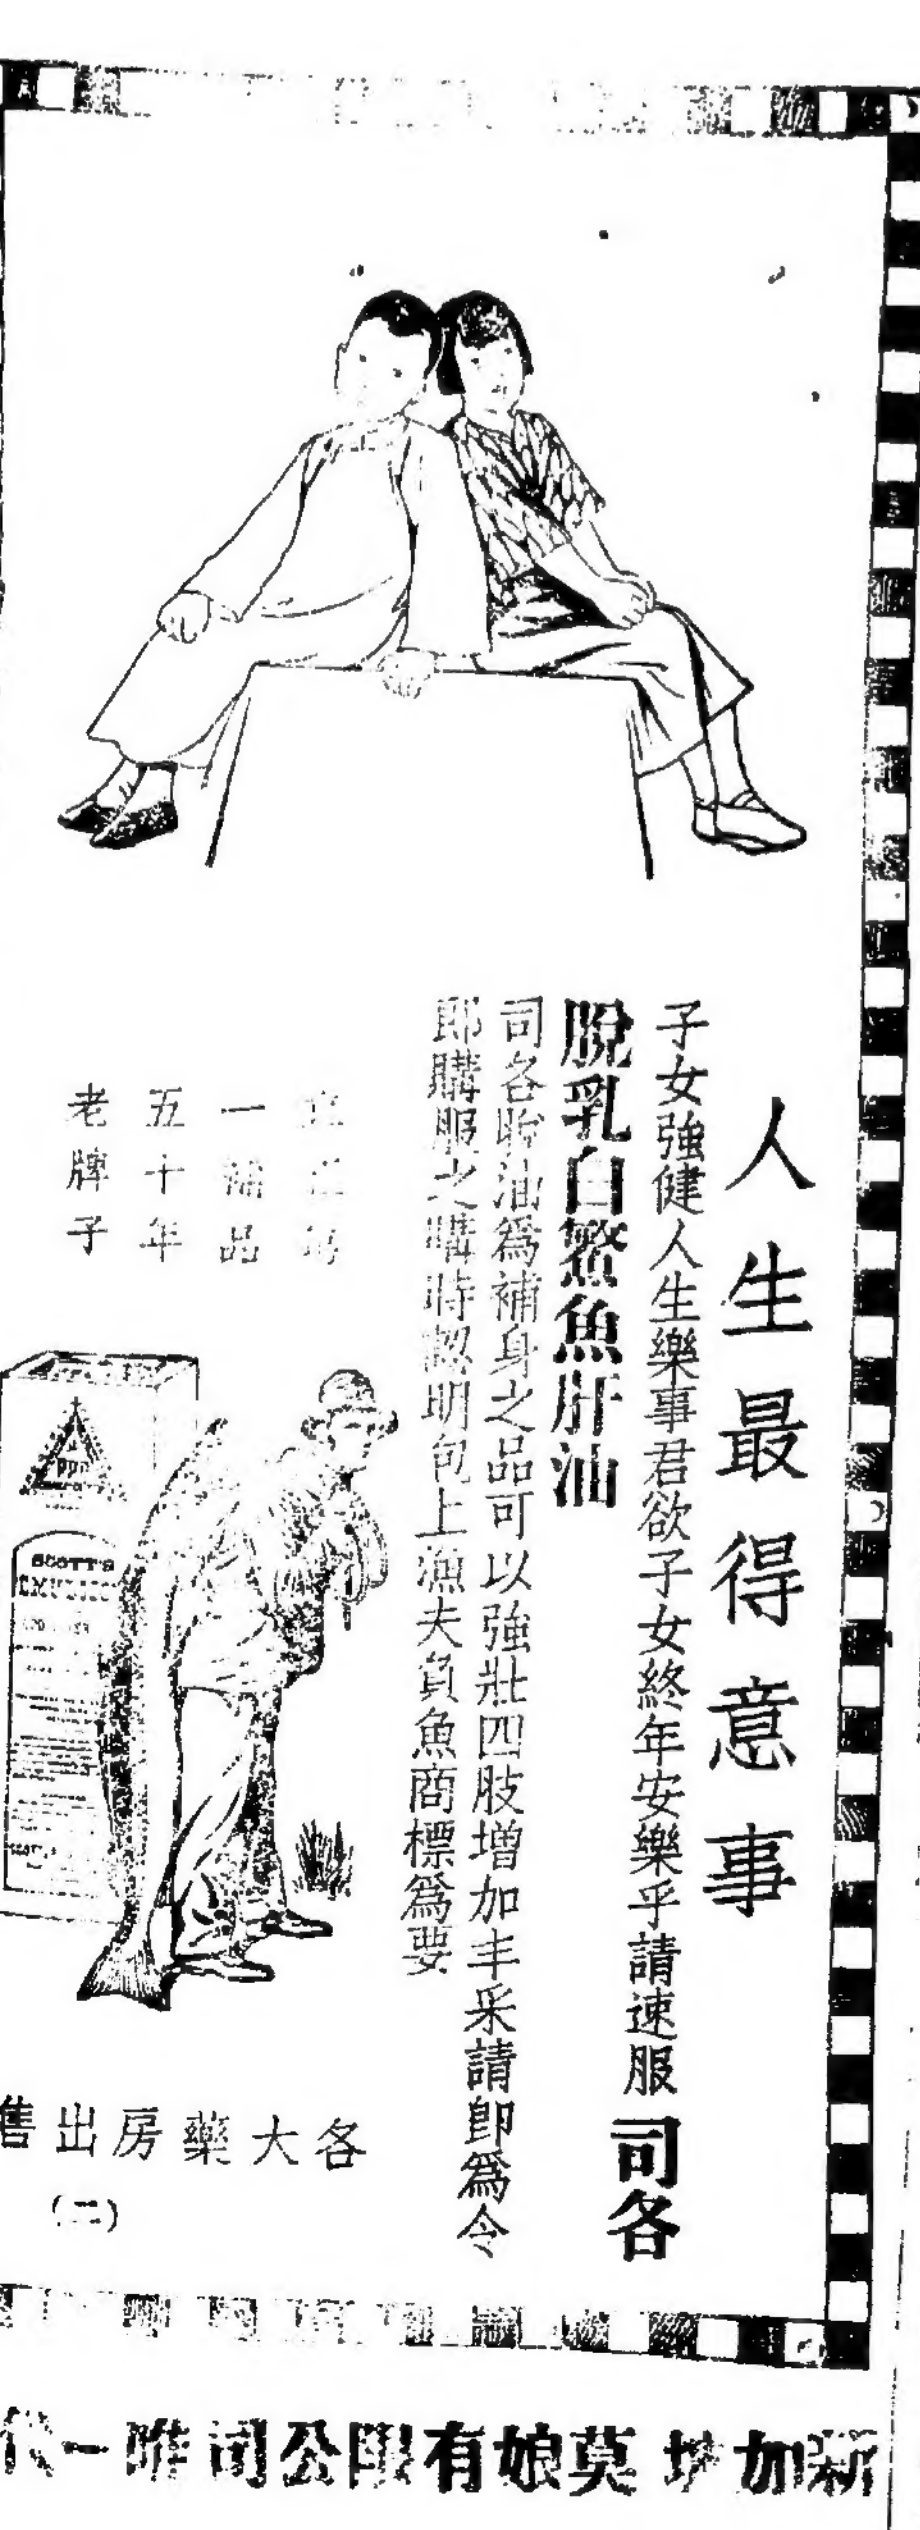 人生最得意事
子女強健人生樂事君欲子女終年安樂乎請速服司各
脫乳白鰵魚肝油
司各脫油爲補身之品可以強壯四肢增加丰采請卽爲令
郎購服之購時認明包上漁夫負魚商標爲要
一補品
五十年
老牌子
SCOTT'S
EMULSION
各大藥房出售
(二)
新加坡莫娘有限公司唯一代